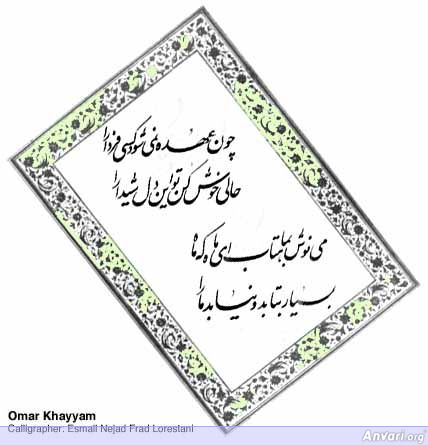 چون عهده نمی شود کسی فردا را
حالی خوش کن تو این دل شیدا را
می نوش بماهتاب ای ماه که ماه
بسیار بتابد و نیابد ما را
Omar Khayyam
Calligrapher: Esmail Nejad Frad Lorestani
Anvari.org